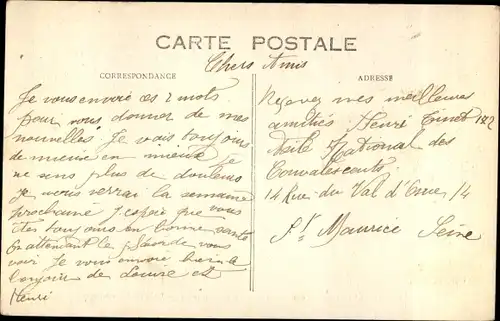 CARTE POSTALE
Chers Amis
CORRESPONDANCE
Je vous envoie ces 2 mots
pour vous donner de mes
nouvelles Je vais toujours
de mieux en mieux je
ne sens plus de douleurs
Je vous verrai la semaine
prochaine j'espère que vous
êtes toujours en bonne santé
En attendant le plaisir de vous
voir Je vous envoie bien le
bonjour de Louise et
Henri
ADRESSE
Reçevez mes meilleures
amitiés Henri
Asile National des
Convalescents
14 Rue du Val d'Osne 14
St Maurice Seine